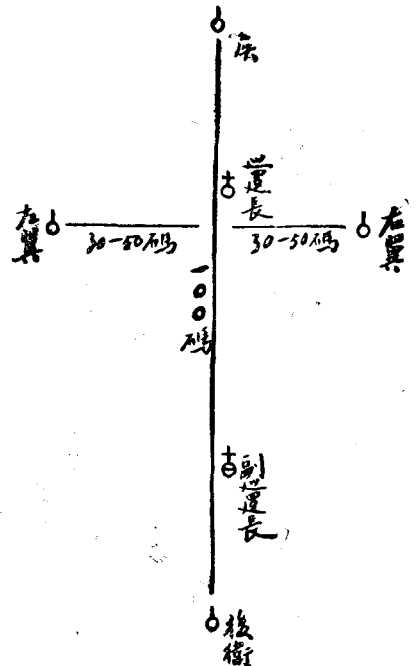 巡邏長
左翼
30-50碼
30-50碼
右翼
一〇〇碼
副巡邏長
後衛